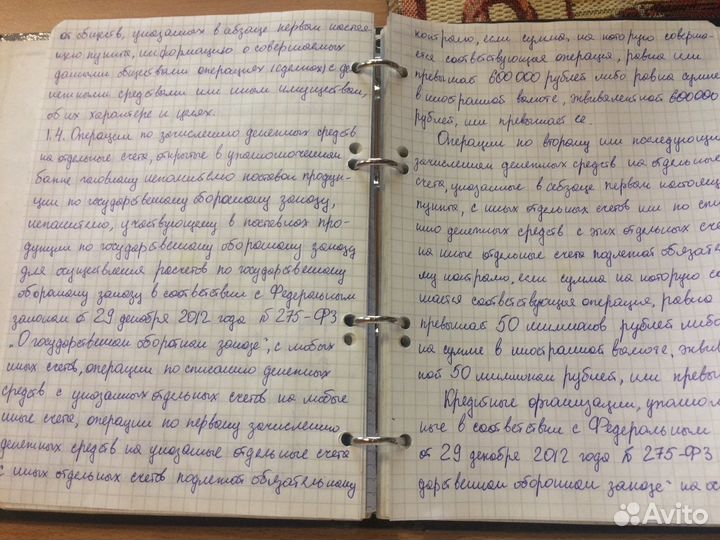 от обществ, указанных в абзаце первом настоя-
щего пункта, информацию о совершаемых
данными обществами операциях (сделках) с де-
нежными средствами или иным имуществом,
об их характере и целях.
1.4. Операции по зачислению денежных средств
на отдельные счета, открытые в уполномоченном
банке головному исполнителю поставок продук-
ции по государственному оборонному заказу,
исполнителю, участвующему в поставках про-
дукции по государственному оборонному заказу
для осуществления расчетов по государственному
оборонному заказу в соответствии с Федеральным
законом от 29 декабря 2012 года № 275-ФЗ
„О государственном оборонном заказе", с любых
иных счетов, операции по списанию денежных
средств с указанных отдельных счетов на любые
иные счета, операции по первому зачислению
денежных средств на указанные отдельные счета
с иных отдельных счетов подлежат обязательному
контролю, если сумма, на которую соверша-
ется соответствующая операция, равна или
превышает 600 000 рублей либо равна сумме
в иностранной валюте, эквивалентной 600 000
рублей, или превышает ее.
Операции по второму или последующим
зачислениям денежных средств на отдельные
счета, указанные в абзаце первом настоящ
пункта, с иных отдельных счетов или по спи
нию денежных средств с этих отдельных сче
на иные отдельные счета подлежат обязател
му контролю, если сумма на которую со
шается соответствующая операция, равна
превышает 50 миллионов рублей либо
на сумме в иностранной валюте, эквив
ной 50 миллионам рублей, или превы
Кредитные организации, уполном
ные в соответствии с Федеральным
от 29 декабря 2012 года № 275-ФЗ
дарственном оборонном заказе" на ос
Avito